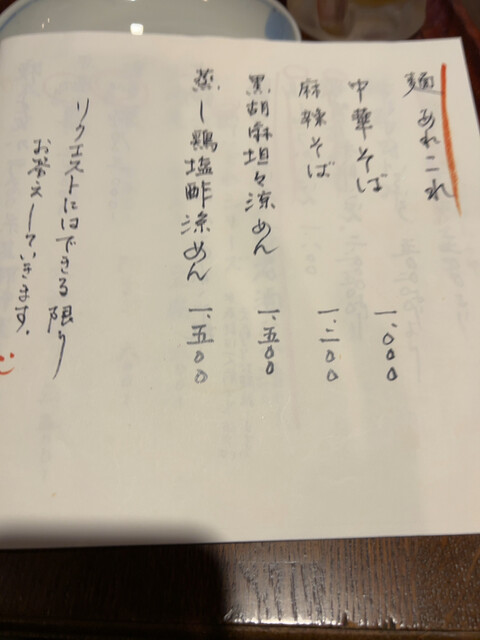 麺あれこれ
中華そば 一、〇〇〇
麻辣そば 一、二〇〇
黒胡麻坦々涼めん 一、五〇〇
蒸し鶏塩酢涼めん 一、五〇〇
リクエストにはできる限り
お答えしていきます。